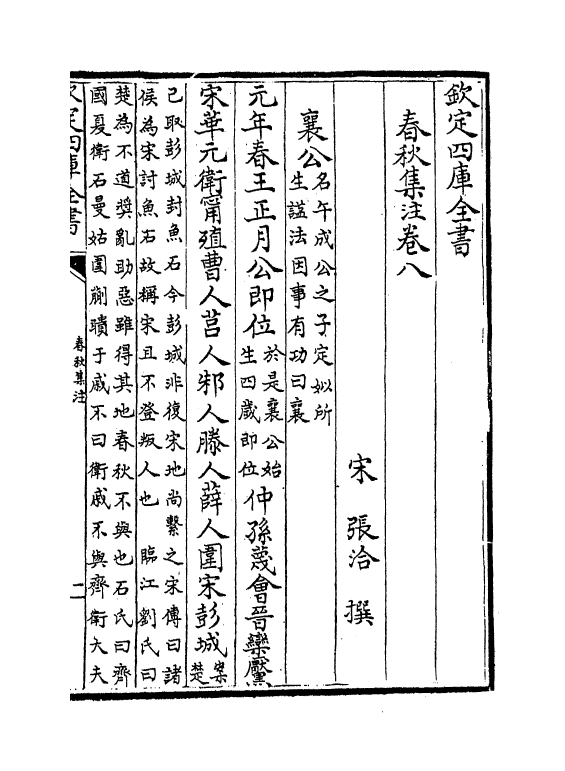 欽定四庫全書
春秋集注卷八
宋 張洽 撰
襄公名午成公之子定姒所生諡法因事有功曰襄
元年春王正月公即位於是襄公始生四歲即位仲孫蔑會晉欒黶
宋華元衛甯殖曹人莒人邾人滕人薛人圍宋彭城案楚
已取彭城封魚石今彭城非復宋地尚繫之宋傳曰諸
侯為宋討魚石故稱宋且不登叛人也 臨江劉氏曰
楚為不道奬亂助惡雖得其地春秋不與也石氏曰齊
國夏衛石曼姑圍蒯聵于戚不曰衛戚不與齊衛大夫
欽定四庫全書
春秋集注
一